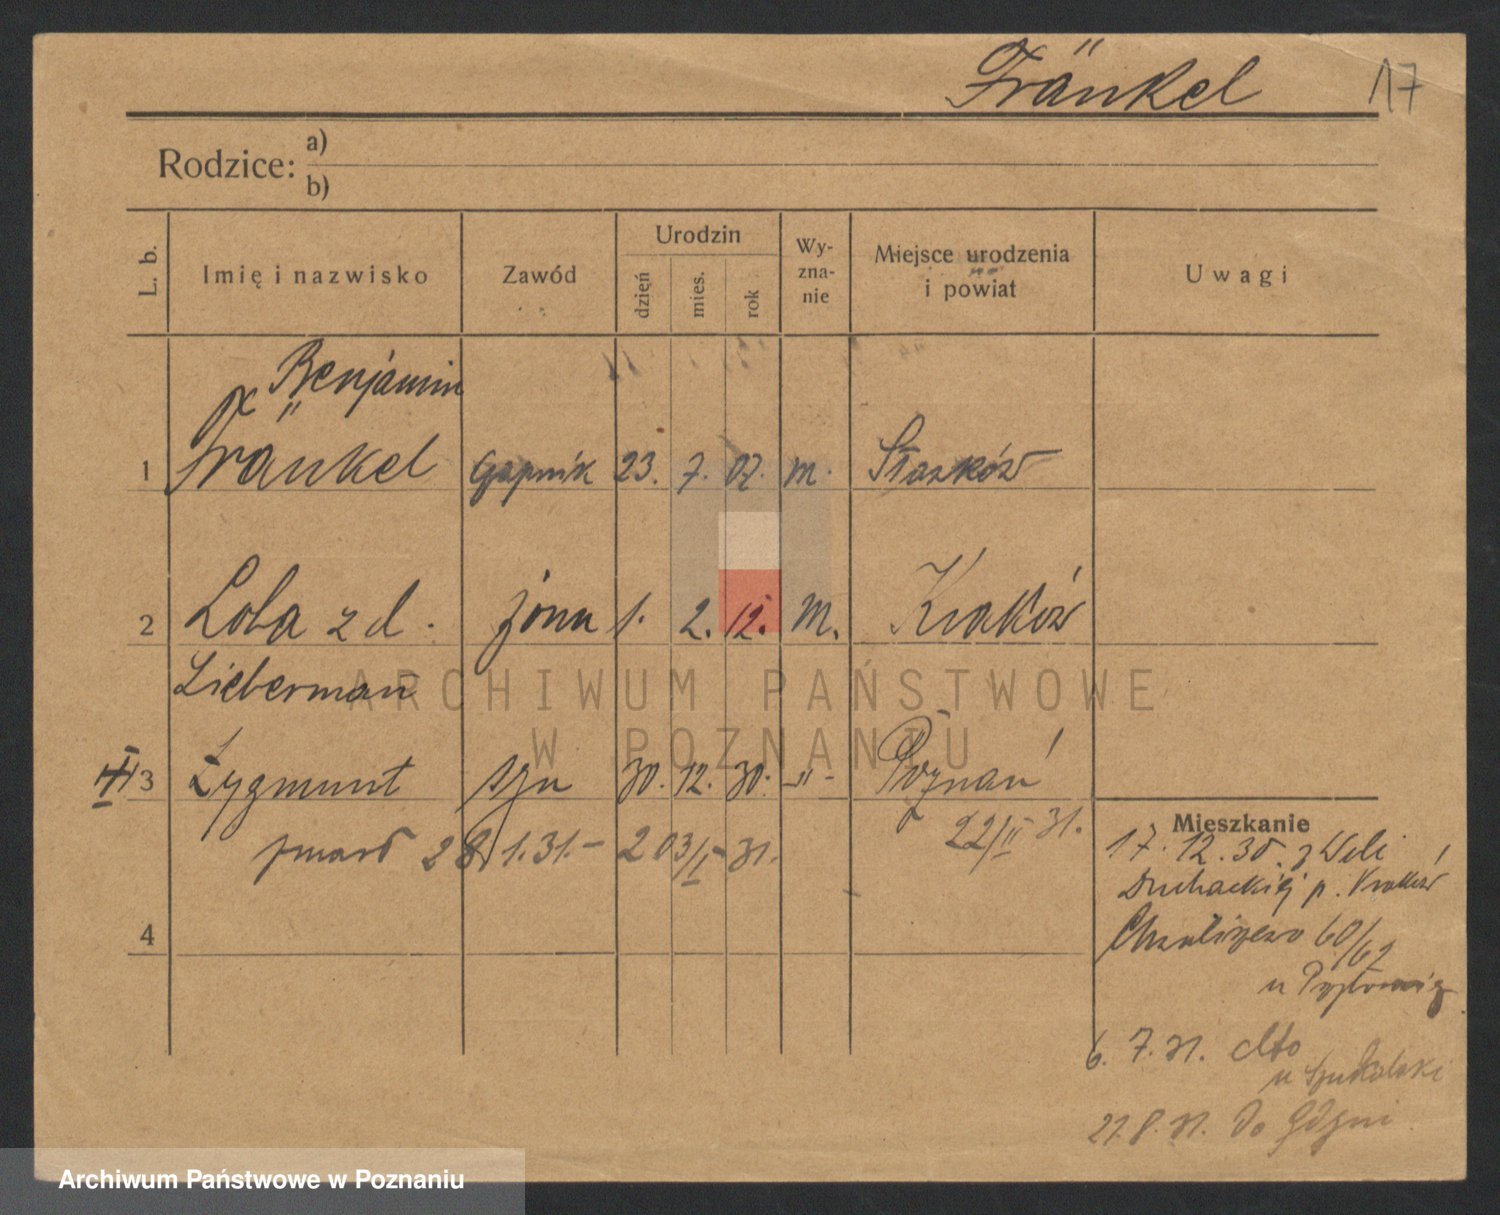 Fränkel 17
Rodzice: a)
b)
L. b. Imię i nazwisko Zawód Urodzin dzień mies. rok Wy-zna-nie Miejsce urodzenia i powiat Uwagi
Benjamin
1 Fränkel 23. 7. 07. m.
2 Loba z d. żona 1. 2. 12. M. Kraków
Lieberman
3 Zygmunt syn 30. 12. 30. -"- Poznań
zmarł 28.1.31.- 203/I 31. 22/II 31.
Mieszkanie
17. 12. 30. z Woli
Duchackiej p. Kraków
4
60/62
u
6. 7. 31. dto
u
21. 8. 31. do Gdyni
ARCHIWUM PAŃSTWOWE
W POZNANIU
Archiwum Państwowe w Poznaniu